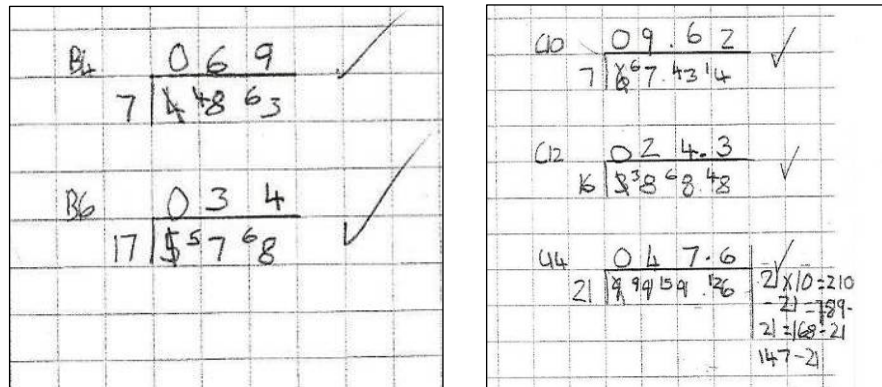 B4 0 6 9
7 4 48 63
B6 0 3 4
17 5 57 68
C10 0 9 . 6 2
7 6 67 . 43 14
C12 0 2 4 . 3
16 3 38 68 . 48
C14 0 4 7 . 6
21 9 99 159 . 126
21 X 10 = 210
- 21 = 189 -
21 = 168 - 21
147 - 21